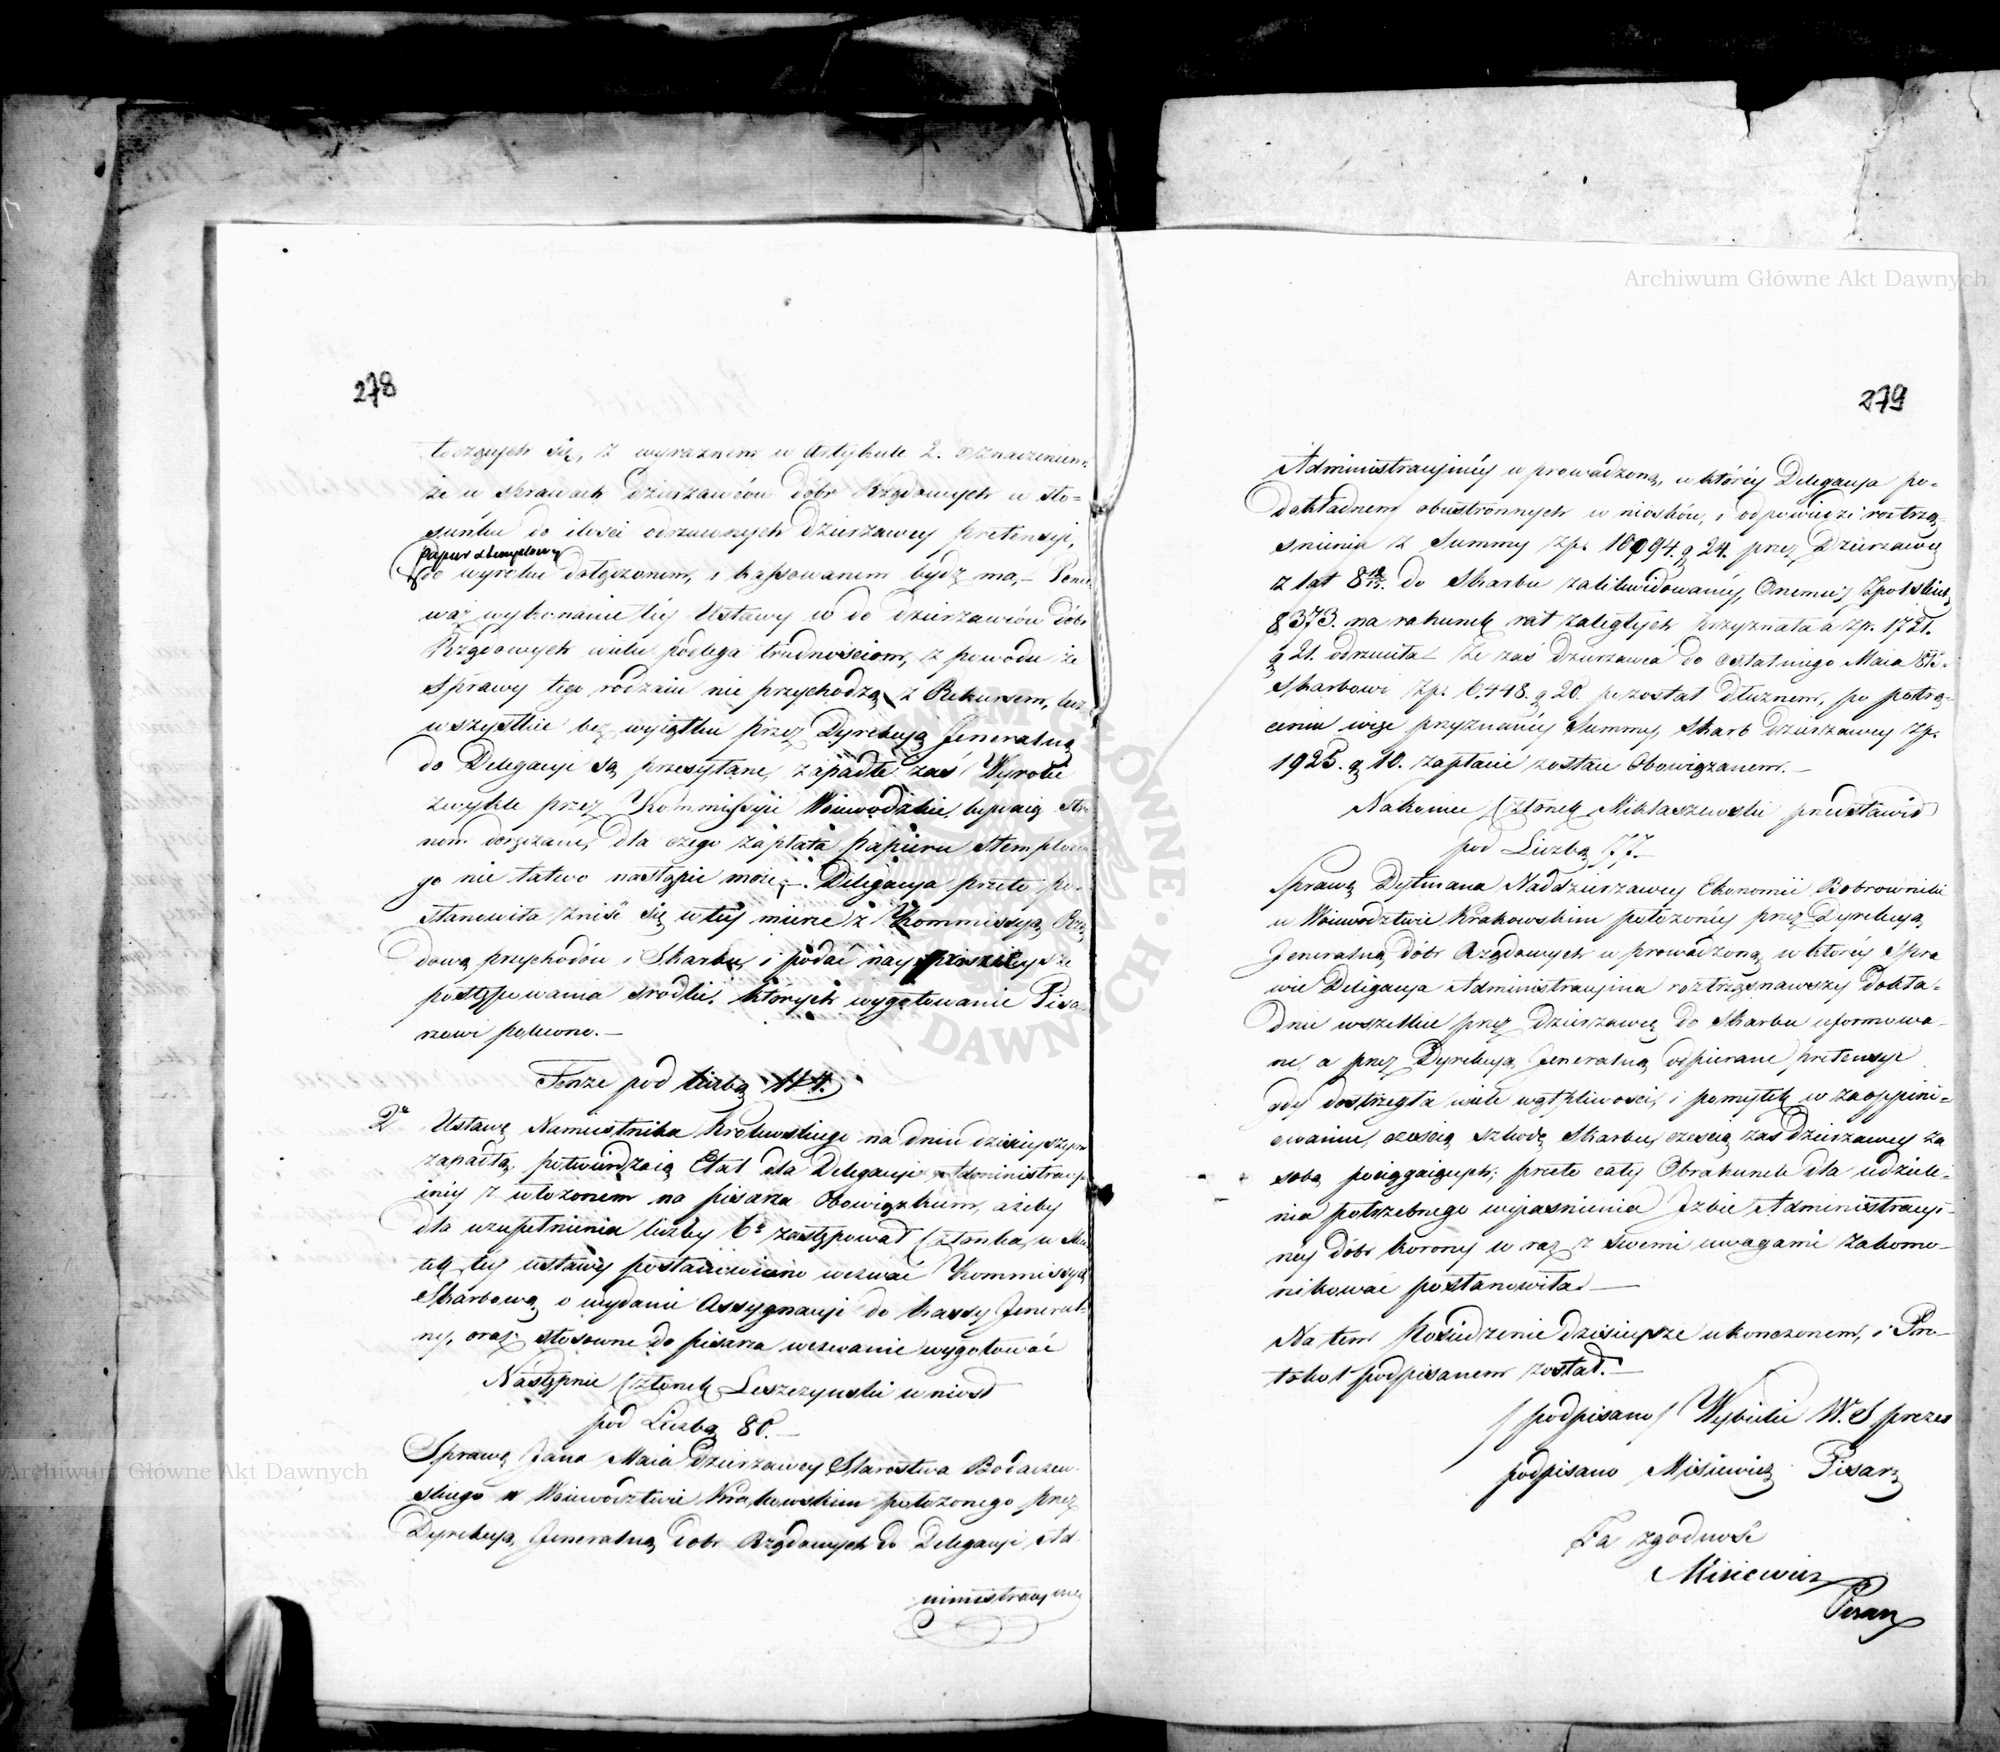 278
toczących się, z wyraznem w Artykule 2. oznaczeniem
że w sprawach Dzierzawców dóbr Rządowych w sto=
sunku do ilości odrzuconych Dzierzawcy pretensyi,
papier stemplowy
do wyroku dołączonem, i kassowanem bydź ma,- Ponie
waż wykonanie téy Ustawy co do dzierzawców dóbr
Rządowych wielu podlega trudnościom, z powodu że
Sprawy tego rodzaiu nie przychodzą z Rekursem, lecz
wszystkie bez wyiątku przez Dyrekcyą Jeneralną
do Delegacyi są przesyłane, zapadłe zaś Wyroki
zwykle przez Kommissyie Woiewódzkie, bywaią stro
nom doręczane, dla czego zapłata papieru stemplowe
go nie łatwo nastąpić może,-. Delegacya przeto po-
stanowiła znieść się w téy mierze z Kommissyą Rzą
dową przychodów i Skarbu, i podać nay
postępowania srodki, których wygotowanie Pisa-
rzowi polecono.-
Tenże pod liczbą
2° Ustawę Namiestnika Królewskiego na dniu dzisieyszym
zapadłą, potwierdzaią Etat dla Delegacyi Administracy
inéy z włożonem na pisarza Obowiązkiem, ażeby
dla uzupełnienia liczby 6ᵉ zastępował Członka, w sku
tek téy ustawy postanowiono wezwać Kommissyą
Skarbową o wydanie Assygnacyi do Kassy Jeneral-
néy, oraz stosowne do pisarza wezwanie wygotować
Następnie Członek Leszczynski wniosł
pod Liczbą 80.-
Sprawę Jana Maia Dzierzawcy Starostwa Bodaczew-
skiego w Woiewodztwie Krakowskim położonego przez
Dyrekcyą Jeneralną dobr Rządowych do Delegacyi Ad-
ministracyiney
279
Administracyinéy wprowadzoną, w któréy Delegacya po-
dokładnem obustronnych wniosków, i odpowiedzi roztrzą
snieniu z Summy zp. 10094. g 24. przez Dzierzawcę
z lat 8 do Skarbu zalikwidowanéy, Onemuż Zpolskich
8373. na rahunek rat zaległych przyznała a zp. 1721.
g 21. odrzuciła że zaś Dzierzawca do ostatniego Maia
Skarbowi zp. 6.448. g 20. pozostał dłuznem, po potrą-
ceniu więc przyznanéy Summy, Skarb Dzierzawcy zp.
1925. g 10. zapłacić zostaie Obowiązanem.-
Nakoniec Członek Miklaszewski przedstawił
pod Liczbą 77.-
Sprawę Dytmana Naddzierzawcy Ekonomii Bobrowniki
w Woiewodztwie Krakowskim położonéy przez Dyrekcyą
Jeneralną dóbr Rządowych wprowadzoną w któréy Spra
wie Delegacya Administracyina roztrząsnąwszy Dokła-
dnie wszelkie przez Dzierzawcę do Skarbu uformowa-
ne, a przez Dyrekcyą Jeneralną odpierane pretensye
gdy dostrzegła wiele wątpliwości, i pomyłek w zaoppini=
owaniu, częścią szkodę Skarbu, częścią zaś Dzierzawcy za
sobą pociągaiących; przeto cały Obrahunek dla udziele-
nia potrzebnego wyiasnienia Izbie Administracyi-
néy dóbr korony wraz z swemi uwagami zakomo-
nikować postanowiła.-
Na tem Posiedzenie dzisieysze ukonczonem, i Pro-
tokoł podpisanem został.-
/podpisano/ Wybicki W. S prezes
podpisano Misiewicz Pisarz
Za zgodność
Misiewicz
Pisarz
Archiwum Główne Akt Dawnych
Archiwum Główne Akt Dawnych